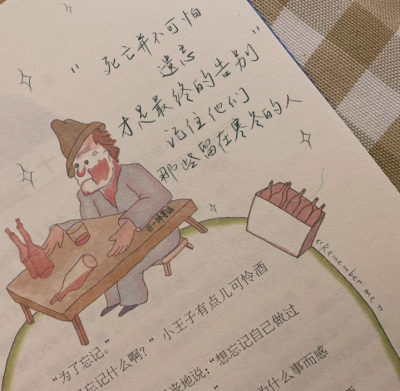 " 死亡并不可怕
遗忘
才是最终的告别"
记住他们
那些留在寒冬的人
《Remember me》
"为了忘记。"
忘记什么啊?" 小王子有点儿可怜酒
来地说:"想忘记自己做过
为什么事而感